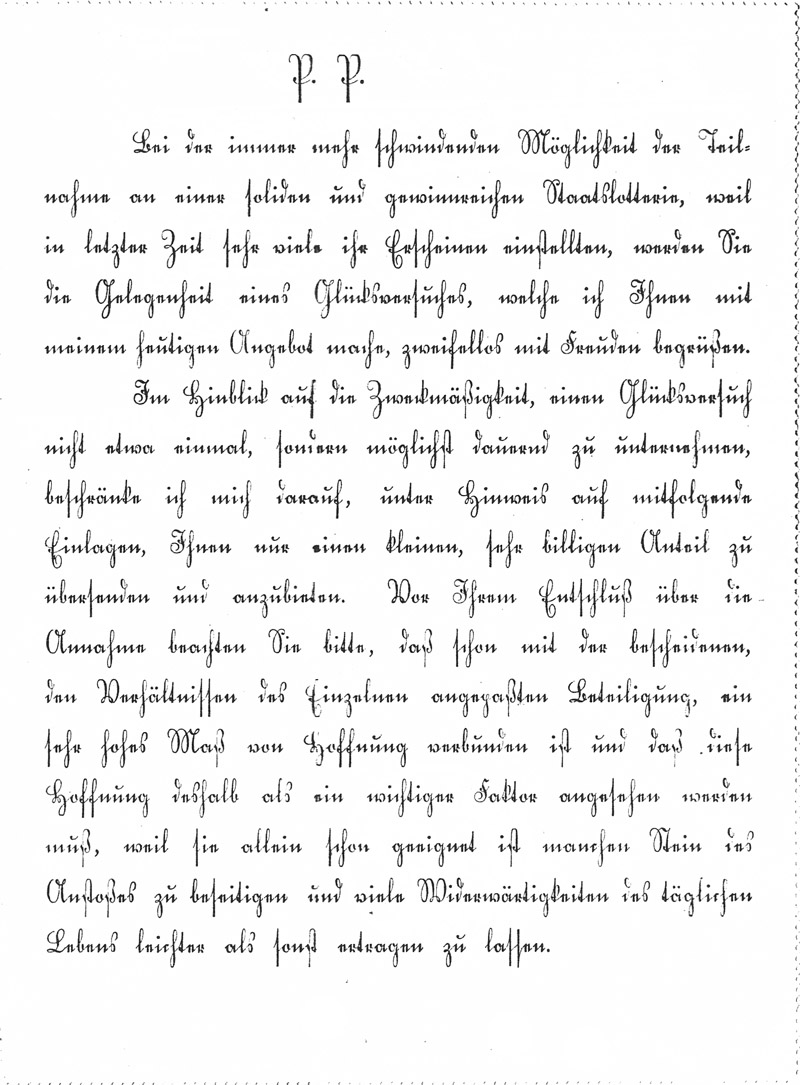 P. P.
Bei der immer mehr schwindenden Möglichkeit der Teil-
nahme an einer soliden und gewinnreichen Staatslotterie, weil
in letzter Zeit sehr viele ihr Erscheinen einstellten, werden Sie
die Gelegenheit eines Glücksversuches, welche ich Ihnen mit
meinem heutigen Angebot mache, zweifellos mit Freuden begrüßen.
Im Hinblick auf die Zweckmäßigkeit, einen Glücksversuch
nicht etwa einmal, sondern möglichst dauernd zu unternehmen,
beschränke ich mich darauf, unter Hinweis auf mitfolgende
Einlagen, Ihnen nur einen kleinen, sehr billigen Anteil zu
übersenden und anzubieten. Vor Ihrem Entschluß über die
Annahme beachten Sie bitte, daß schon mit der bescheidenen,
den Verhältnissen des Einzelnen angepaßten Beteiligung, ein
sehr hohes Maß von Hoffnung verbunden ist und daß diese
Hoffnung deshalb als ein wichtiger Faktor angesehen werden
muß, weil sie allein schon geeignet ist manchen Stein des
Anstoßes zu beseitigen und viele Widerwärtigkeiten des täglichen
Lebens leichter als sonst ertragen zu lassen.